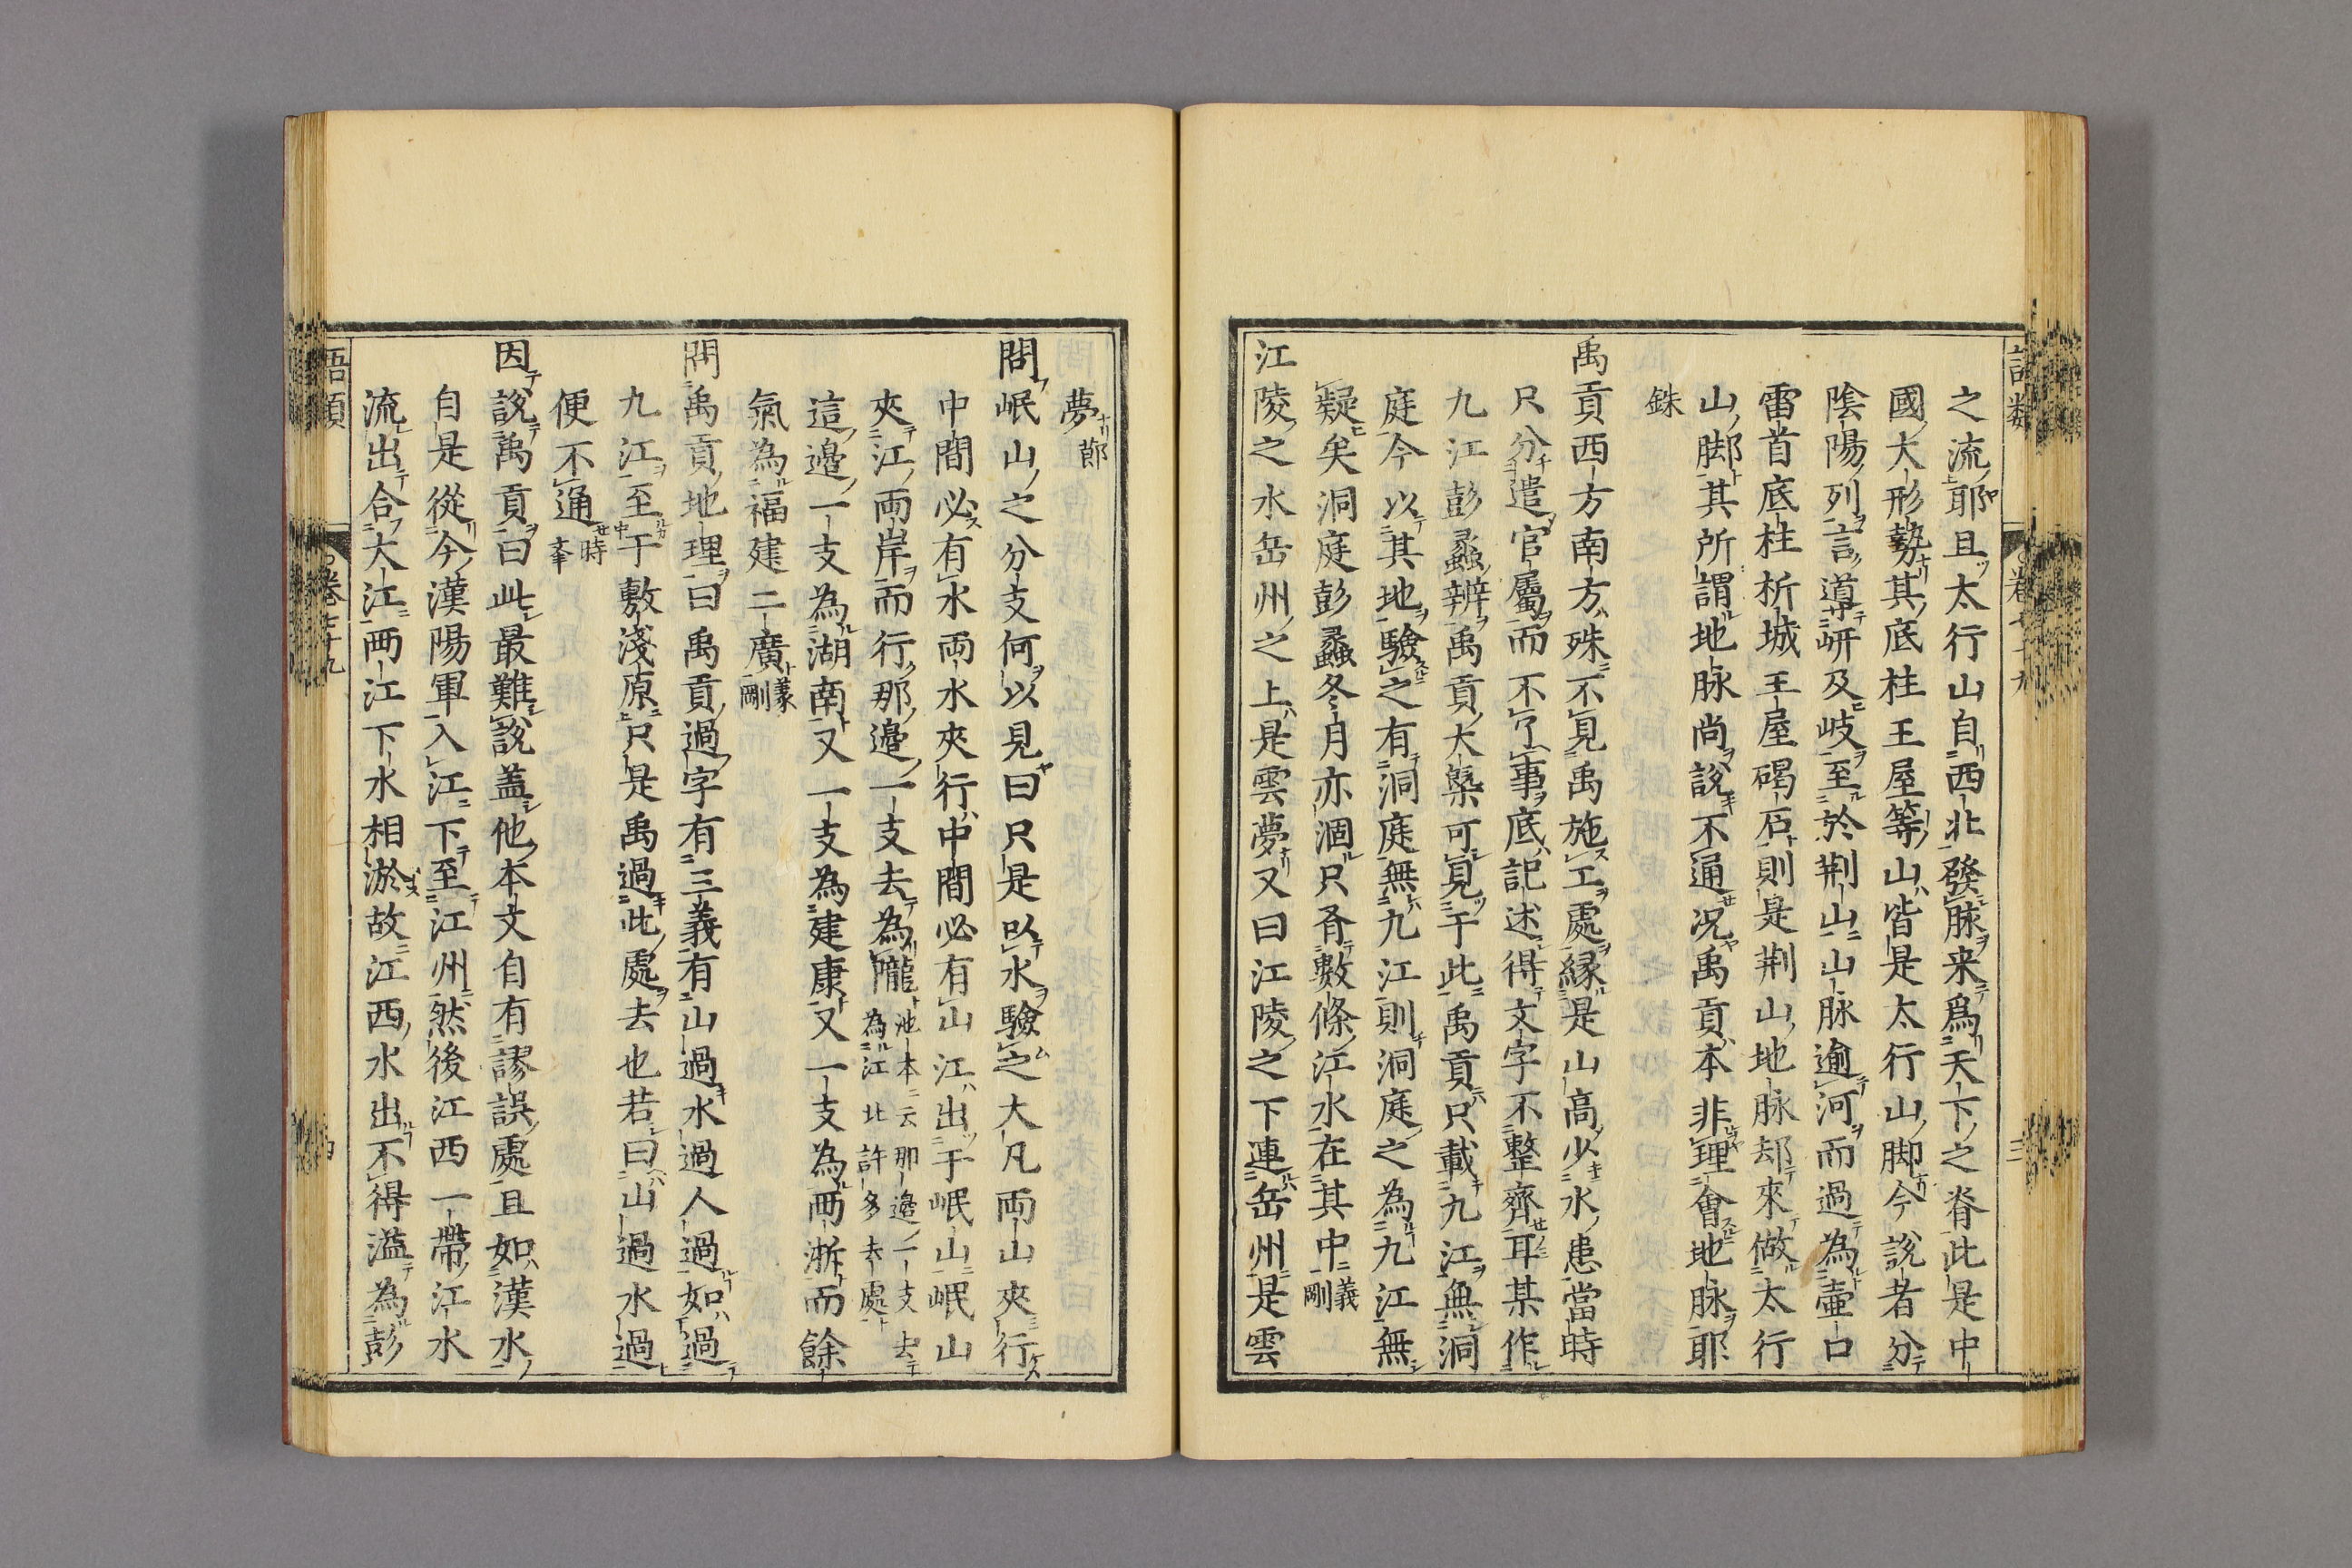 語類
卷七十九
三
之流耶且太行山自西北發脉来爲天下之脊此是中
國大形勢其底柱王屋等山皆是太行山脚今說者分
陰陽列言導岍及岐至於荆山山脉逾河而過為壷口
雷首底柱析城王屋碣石則是荆山地脉却來做太行
山脚其所謂地脉尚說不通况禹貢本非理會地脉耶
銖
禹貢西方南方殊不見禹施工處緣是山高少水患當時
只分遣官屬而不了事底記述得文字不整齊耳某作
九江彭蠡辨禹貢大槩可見于此禹貢只載九江無洞
庭今以其地驗之有洞庭無九江則洞庭之為九江無
疑矣洞庭彭蠡冬月亦涸只有數條江水在其中義剛
江陵之水岳州之上是雲夢又曰江陵之下連岳州是雲
夢節
問岷山之分支何以見曰只是以水驗之大凡兩山夾行
中間必有水兩水夾行中間必有山江出于岷山岷山
夾江兩岸而行那邉一支去為隴池本云那邉一支去為江北許多去處
這邉一支為湖南又一支為建康又一支為兩浙而餘
氣為福建二廣義剛
問禹貢地理曰禹貢過字有三義有山過水過人過如過
九江至于敷淺原只是禹過此處去也若曰山過水過
便不通時舉
因說禹貢曰此最難說盖他本文自有謬誤處且如漢水
自是從今漢陽軍入江下至江州然後江西一帶江水
流出合大江兩江下水相淤故江西水出不得溢為彭
語類
卷七十九